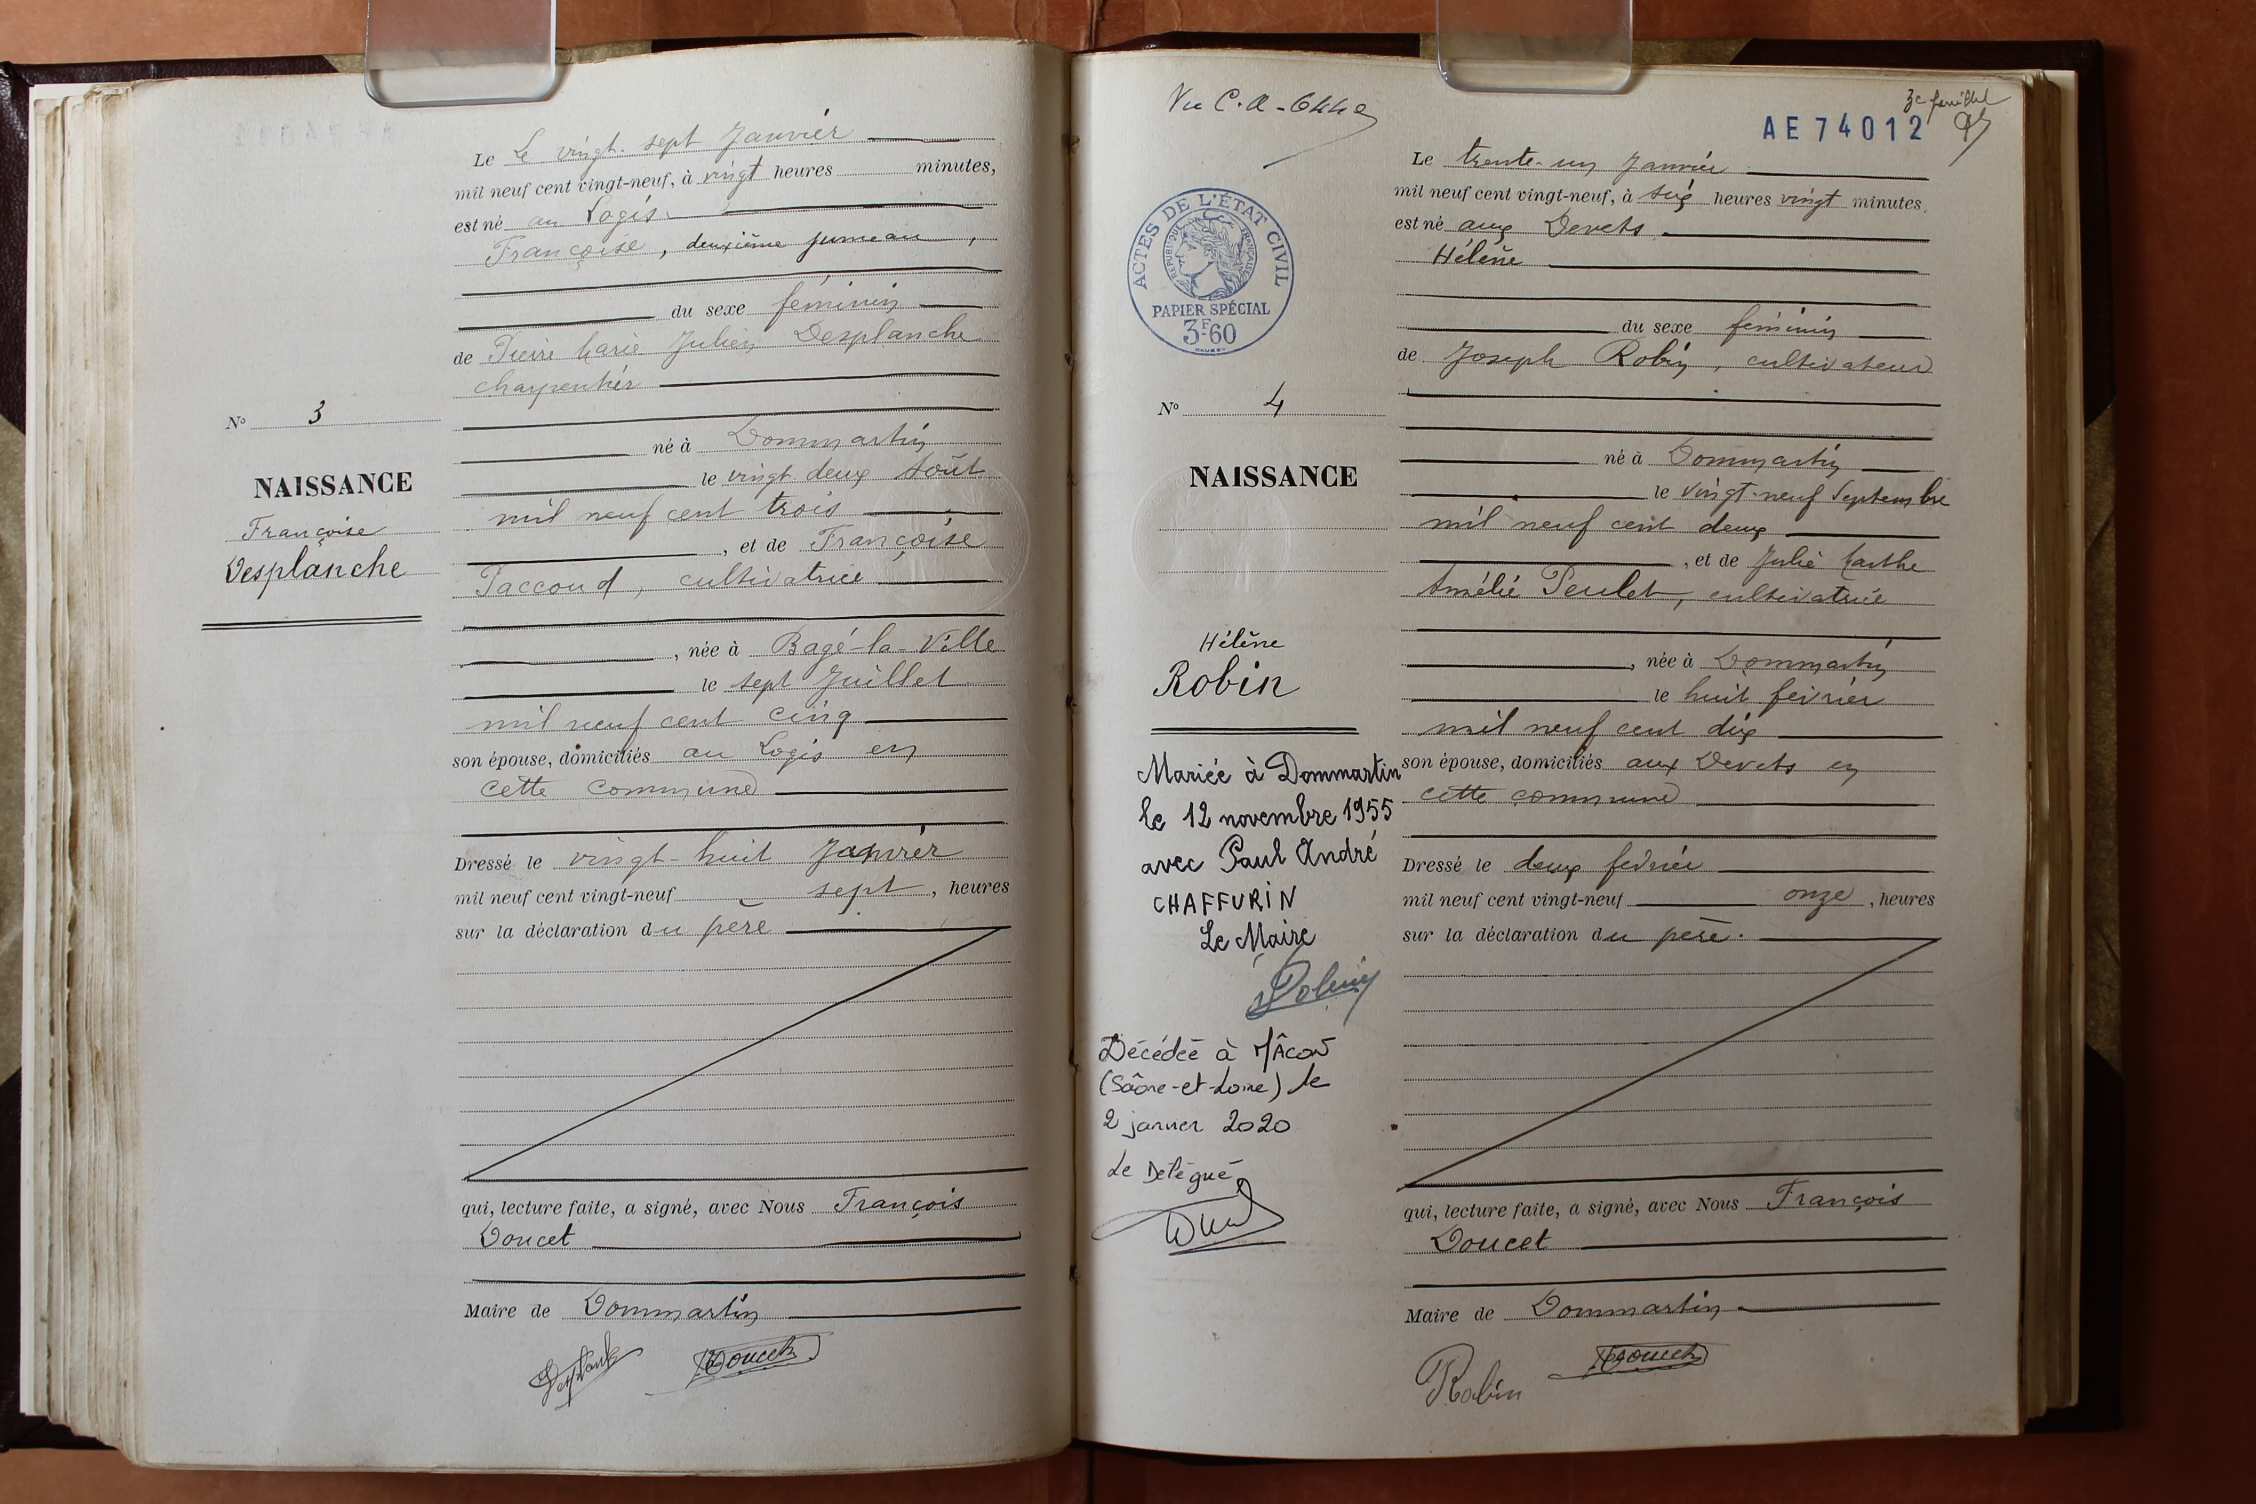 Le Le vingt-sept Janvier
mil neuf cent vingt-neuf, à vingt heures minutes,
est né au Logis
Françoise, deuxième jumeau,
du sexe féminin
de Pierre Marie Julien Desplanche
charpentier
né à Dommartin
le vingt deux Août
mil neuf cent trois
, et de Françoise
Paccoud, cultivatrice
, née à Bagé-la-Ville
le sept Juillet
mil neuf cent cinq
son épouse, domiciliés au Logis en
cette commune
Dressé le vingt-huit Janvier
mil neuf cent vingt-neuf sept, heures
sur la déclaration du père
qui, lecture faite, a signé, avec Nous François
Doucet
Maire de Dommartin
Doucet
No 3
NAISSANCE
Françoise
Desplanche
Vu C.A.
3e feuillet
AE74012
ACTES DE L'ÉTAT CIVIL
RÉPUBLIQUE FRANÇAISE
PAPIER SPÉCIAL
3F60
No 4
NAISSANCE
Hélène
Robin
Mariée à Dommartin
le 12 novembre 1955
avec Paul André
CHAFFURIN
Le Maire
Décédée à MÂCON
(Saône-et-Loire) le
2 janvier 2020
Le Délégué
Le trente-un Janvier
mil neuf cent vingt-neuf, à six heures vingt minutes,
est né aux Devets
Hélène
du sexe féminin
de Joseph Robin, cultivateur
né à Dommartin
le vingt-neuf Septembre
mil neuf cent deux
, et de Julie Marthe
Amélie Peulet, cultivatrice
, née à Dommartin
le huit février
mil neuf cent dix
son épouse, domiciliés aux Devets en
cette commune
Dressé le deux février
mil neuf cent vingt-neuf onze, heures
sur la déclaration du père.
qui, lecture faite, a signé, avec Nous François
Doucet
Maire de Dommartin
Robin Doucet